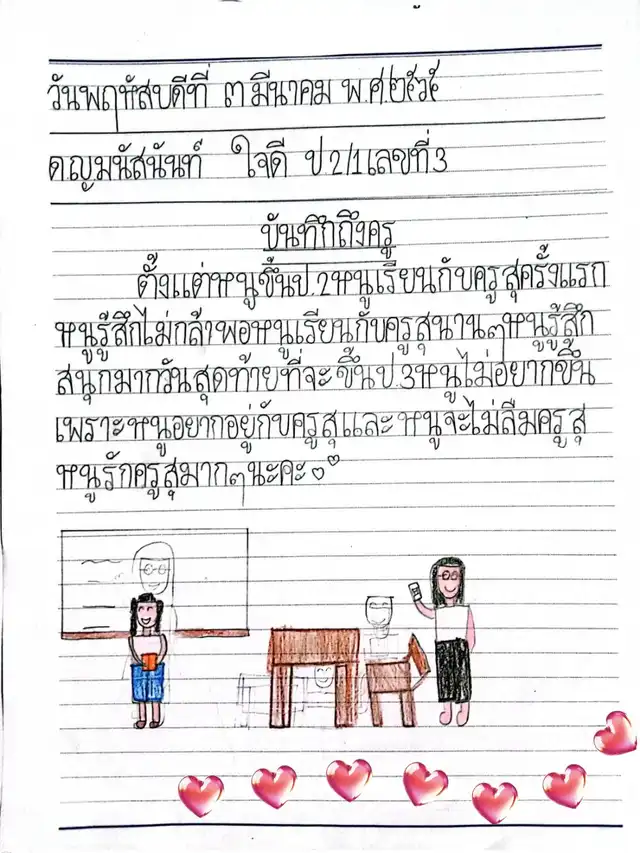 วันพฤหัสบดีที่ ๓ มีนาคม พ.ศ.๒๕๖๕
ด.ญ.มนัสนันท์ ใจดี ป.2/1 เลขที่ 3
บันทึกถึงครู
ตั้งแต่หนูขึ้นป.2หนูเรียนกับครูสุครั้งแรก
หนูรู้สึกไม่กล้าพอหนูเรียนกับครูสุนานๆหนูรู้สึก
สนุกมากวันสุดท้ายที่จะขึ้นป.3หนูไม่อยากขึ้น
เพราะหนูอยากอยู่กับครูสุและหนูจะไม่ลืมครูสุ
หนูรักครูสุมากๆนะคะ